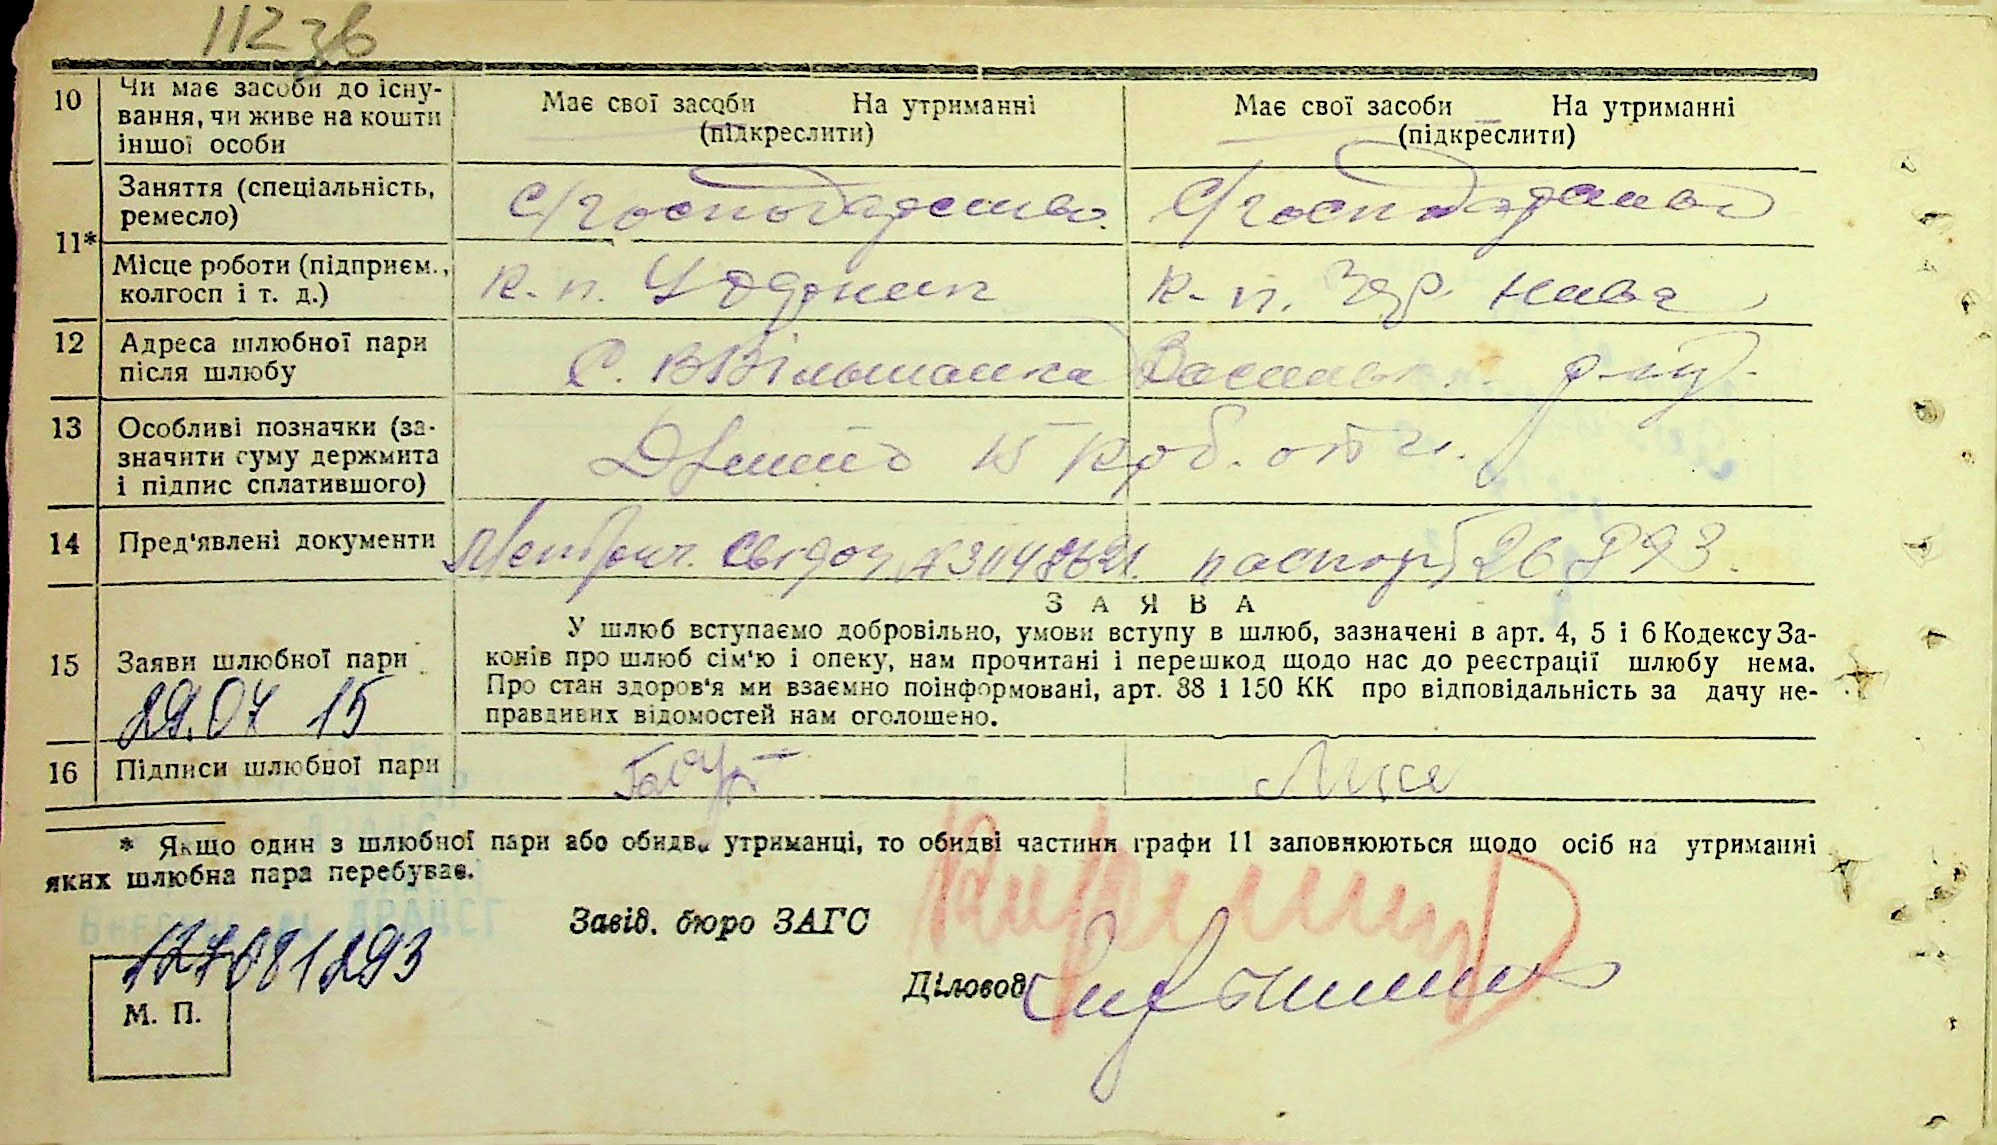 112 зв
10 Чи має засоби до існу-
вання, чи живе на кошти
іншої особи
Має свої засоби На утриманні
(підкреслити)
Має свої засоби На утриманні
(підкреслити)
11* Заняття (спеціальність,
ремесло)
С/господарство. С/господарство
Місце роботи (підприєм.,
колгосп і т. д.)
к. п. к. п. Чер. Нива
12 Адреса шлюбної пари
після шлюбу
С. В Вільшанка Васильк. р-ну.
13 Особливі позначки (за-
значити суму держмита
і підпис сплатившого)
15 кроб.
14 Пред'явлені документи
Метрич. свідоц. паспорт 26893.
15 Заяви шлюбної пари
29.07 15
З А Я В А
У шлюб вступаємо добровільно, умови вступу в шлюб, зазначені в арт. 4, 5 і 6 Кодексу За-
конів про шлюб сім'ю і опеку, нам прочитані і перешкод щодо нас до реєстрації шлюбу нема.
Про стан здоров'я ми взаємно поінформовані, арт. 88 і 150 КК про відповідальність за дачу не-
правдивих відомостей нам оголошено.
16 Підписи шлюбної пари
* Якщо один з шлюбної пари або обидва утриманці, то обидві частини графи 11 заповнюються щодо осіб на утриманні
яких шлюбна пара перебуває.
Завід. бюро ЗАГС
Діловод
127081293
М. П.